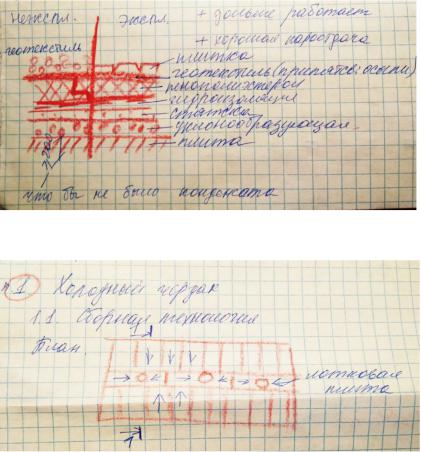 Неэкспл. Экспл. + дольше работает
+ хорошая пароотдача
геотекстиль
плитка
геотекстиль (препятсв: осыпи)
пенополистерол
гидроизоляция
стяжка
уклонообразующая.
плита
что бы не было кондесата
1 Холодный чердак
1.1. Сборная технология
План.
1
лотковая
плита
1